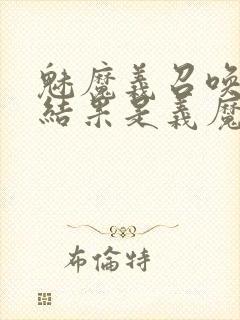 魅魔義召喚
結果是義魔
布倫特